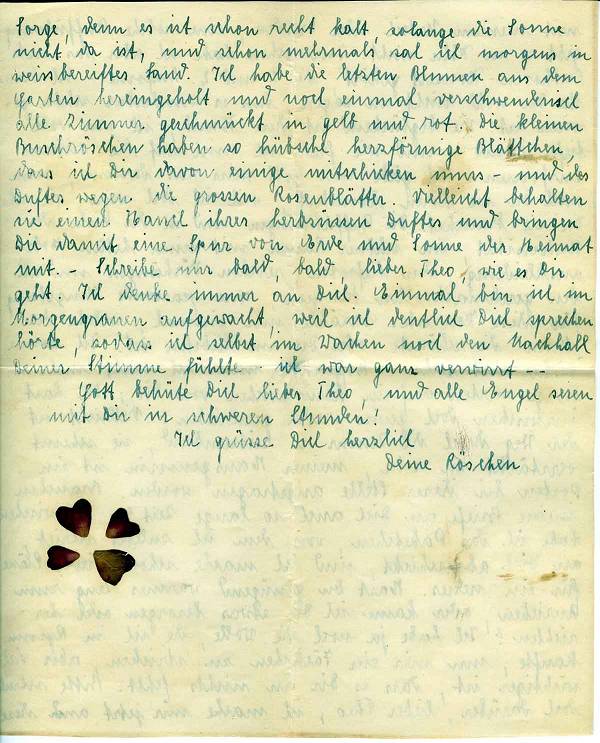 Sorge, denn es ist schon recht kalt, solange die Sonne
nicht da ist, und schon mehrmals sah ich morgens in
weissbereiftes Land. Ich habe die letzten Blumen aus dem
Garten hereingeholt und noch einmal verschwenderisch
alle Zimmer geschmückt in gelb und rot. Die kleinen
Buschröschen haben so hübsche herzförmige Blättchen,
dass ich Dir davon einige mitschicken muss - und des
Duftes wegen die grossen Rosenblätter. Vielleicht behalten
sie einen Hauch ihres herbsüssen Duftes und bringen
Dir damit eine Spur von Erde und Sonne der Heimat
mit. - Schreibe nur bald, bald lieber Theo, wie es Dir
geht. Ich denke immer an Dich. Einmal bin ich im
Morgengrauen aufgewacht, weil ich deutlich Dich sprechen
hörte, sodass ich selbst im Wachen noch den Nachhall
Deiner Stimme fühlte - ich war ganz verwirrt --
Gott behüte Dich lieber Theo, und alle Engel seien
mit Dir in schweren Stunden!
Ich grüsse Dich herzlich
Deine Röschen